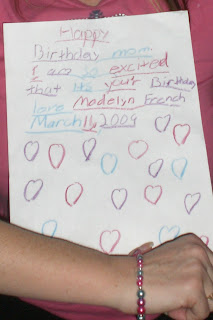 Happy
Birthday mom
I am so excited
that its your Birthday
love Madelyn French
March 11, 2009